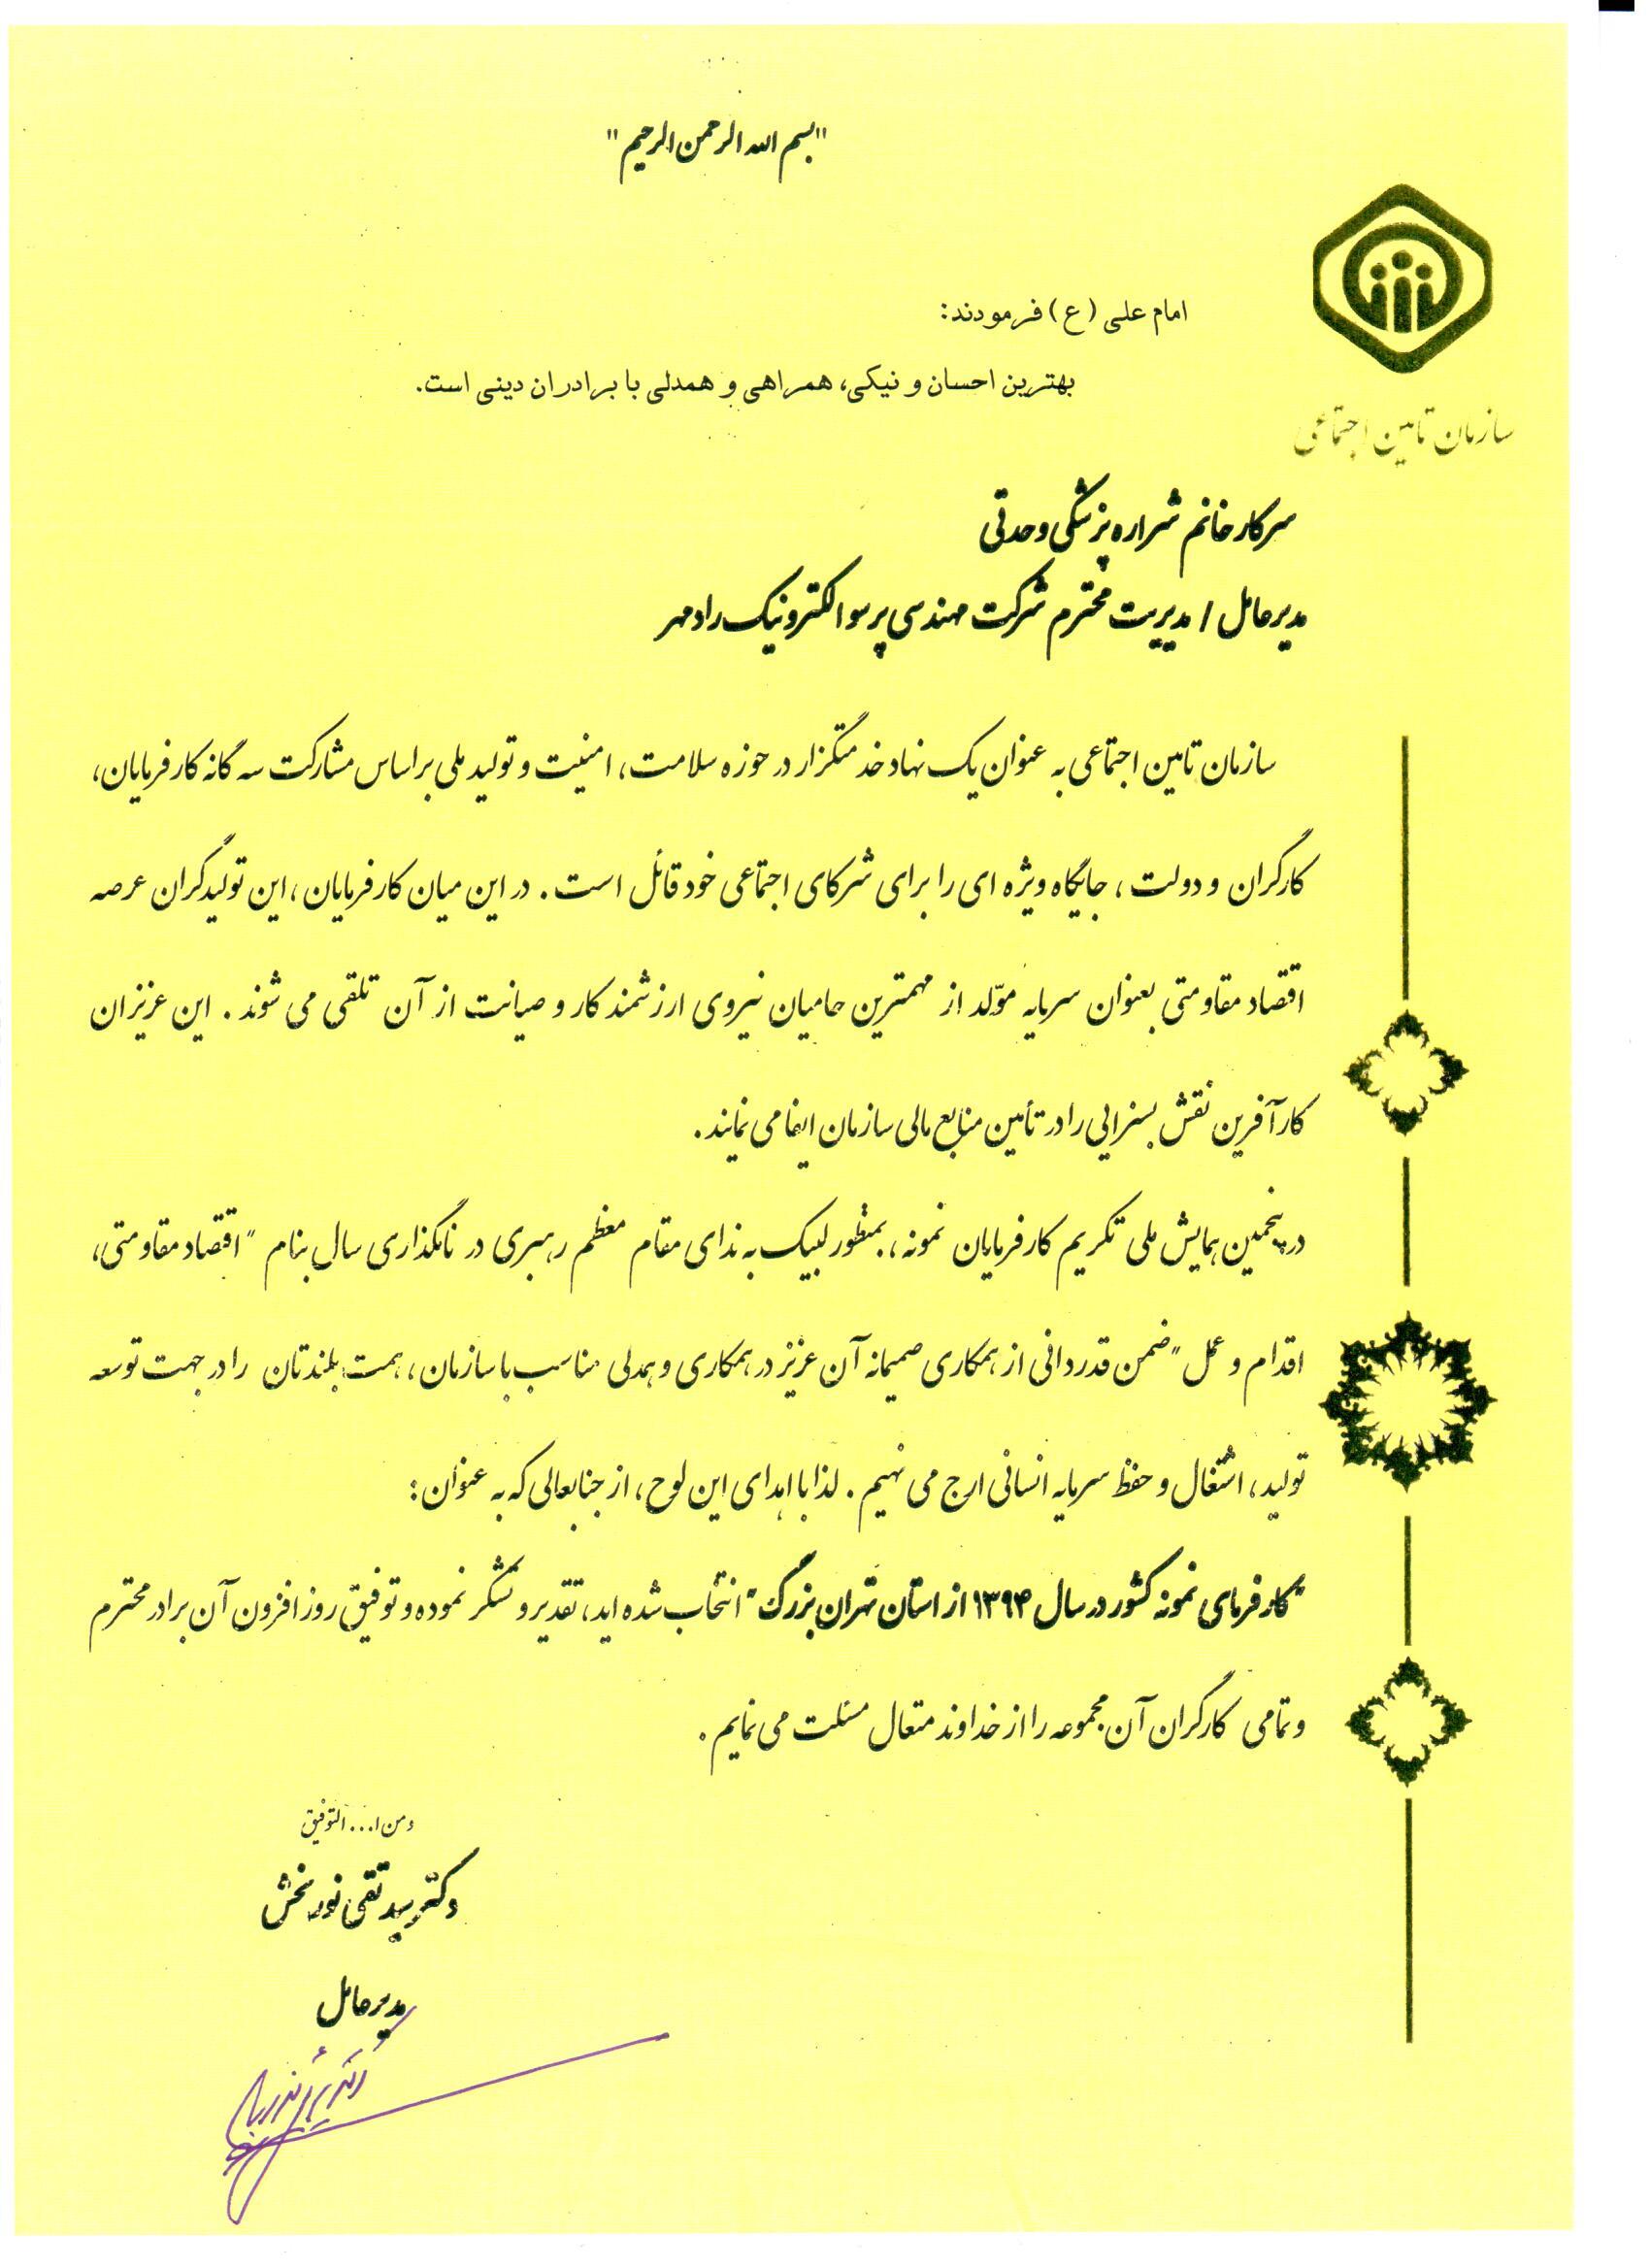 "بسم الله الرحمن الرحیم"
امام علی (ع) فرمودند:
بهترین احسان و نیکی، همراهی و همدلی با برادران دینی است.
سازمان تامین اجتماعی
سرکار خانم شراره پزشکی وحدتی
مدیرعامل / مدیریت محترم شرکت مهندسی پرسو الکترونیک رادمهر
سازمان تامین اجتماعی به عنوان یک نهاد خدمتگزار در حوزه سلامت، امنیت و تولید ملی براساس مشارکت سه گانه کارفرمایان،
کارگران و دولت، جایگاه ویژه ای را برای شرکای اجتماعی خود قائل است. در این میان کارفرمایان، این تولیدگران عرصه
اقتصاد مقاومتی بعنوان سرمایه مولّد از مهمترین حامیان نیروی ارزشمند کار و صیانت از آن تلقی می شوند. این عزیزان
کارآفرین نقش بسزایی را در تأمین منابع مالی سازمان ایفا می نمایند.
در پنجمین همایش ملی تکریم کارفرمایان نمونه، بمنظور لبیک به ندای مقام معظم رهبری در نامگذاری سال بنام "اقتصاد مقاومتی،
اقدام و عمل" ضمن قدردانی از همکاری صمیمانه آن عزیز در همکاری و همدلی مناسب با سازمان، همت بلندتان را در جهت توسعه
تولید، اشتغال و حفظ سرمایه انسانی ارج می نهیم. لذا با اهدای این لوح، از جنابعالی که به عنوان:
"کارفرمای نمونه کشور در سال ۱۳۹۴ از استان تهران بزرگ" انتخاب شده اید، تقدیر و تشکر نموده و توفیق روز افزون آن برادر محترم
و تمامی کارگران آن مجموعه را از خداوند متعال مسئلت می نمایم.
ومن ا... التوفیق
دکتر سید تقی نوربخش
مدیرعامل